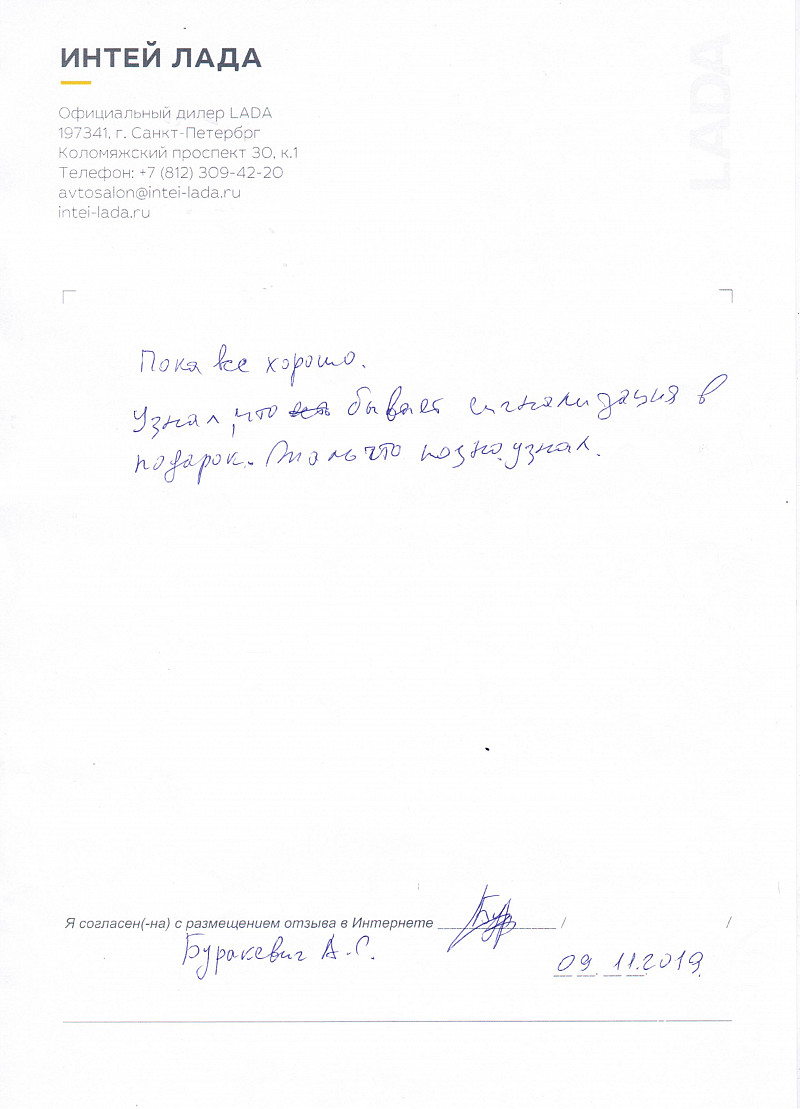 ИНТЕЙ ЛАДА
LADA
Официальный дилер LADA
197341, г. Санкт-Петербрг
Коломяжский проспект 30, к.1
Телефон: +7 (812) 309-42-20
avtosalon@intei-lada.ru
intei-lada.ru
Пока все хорошо.
Узнал, что бывает сигнализация в
подарок. Жаль что поздно узнал.
Я согласен(-на) с размещением отзыва в Интернете / /
Буракевич А.С.
09.11.2019